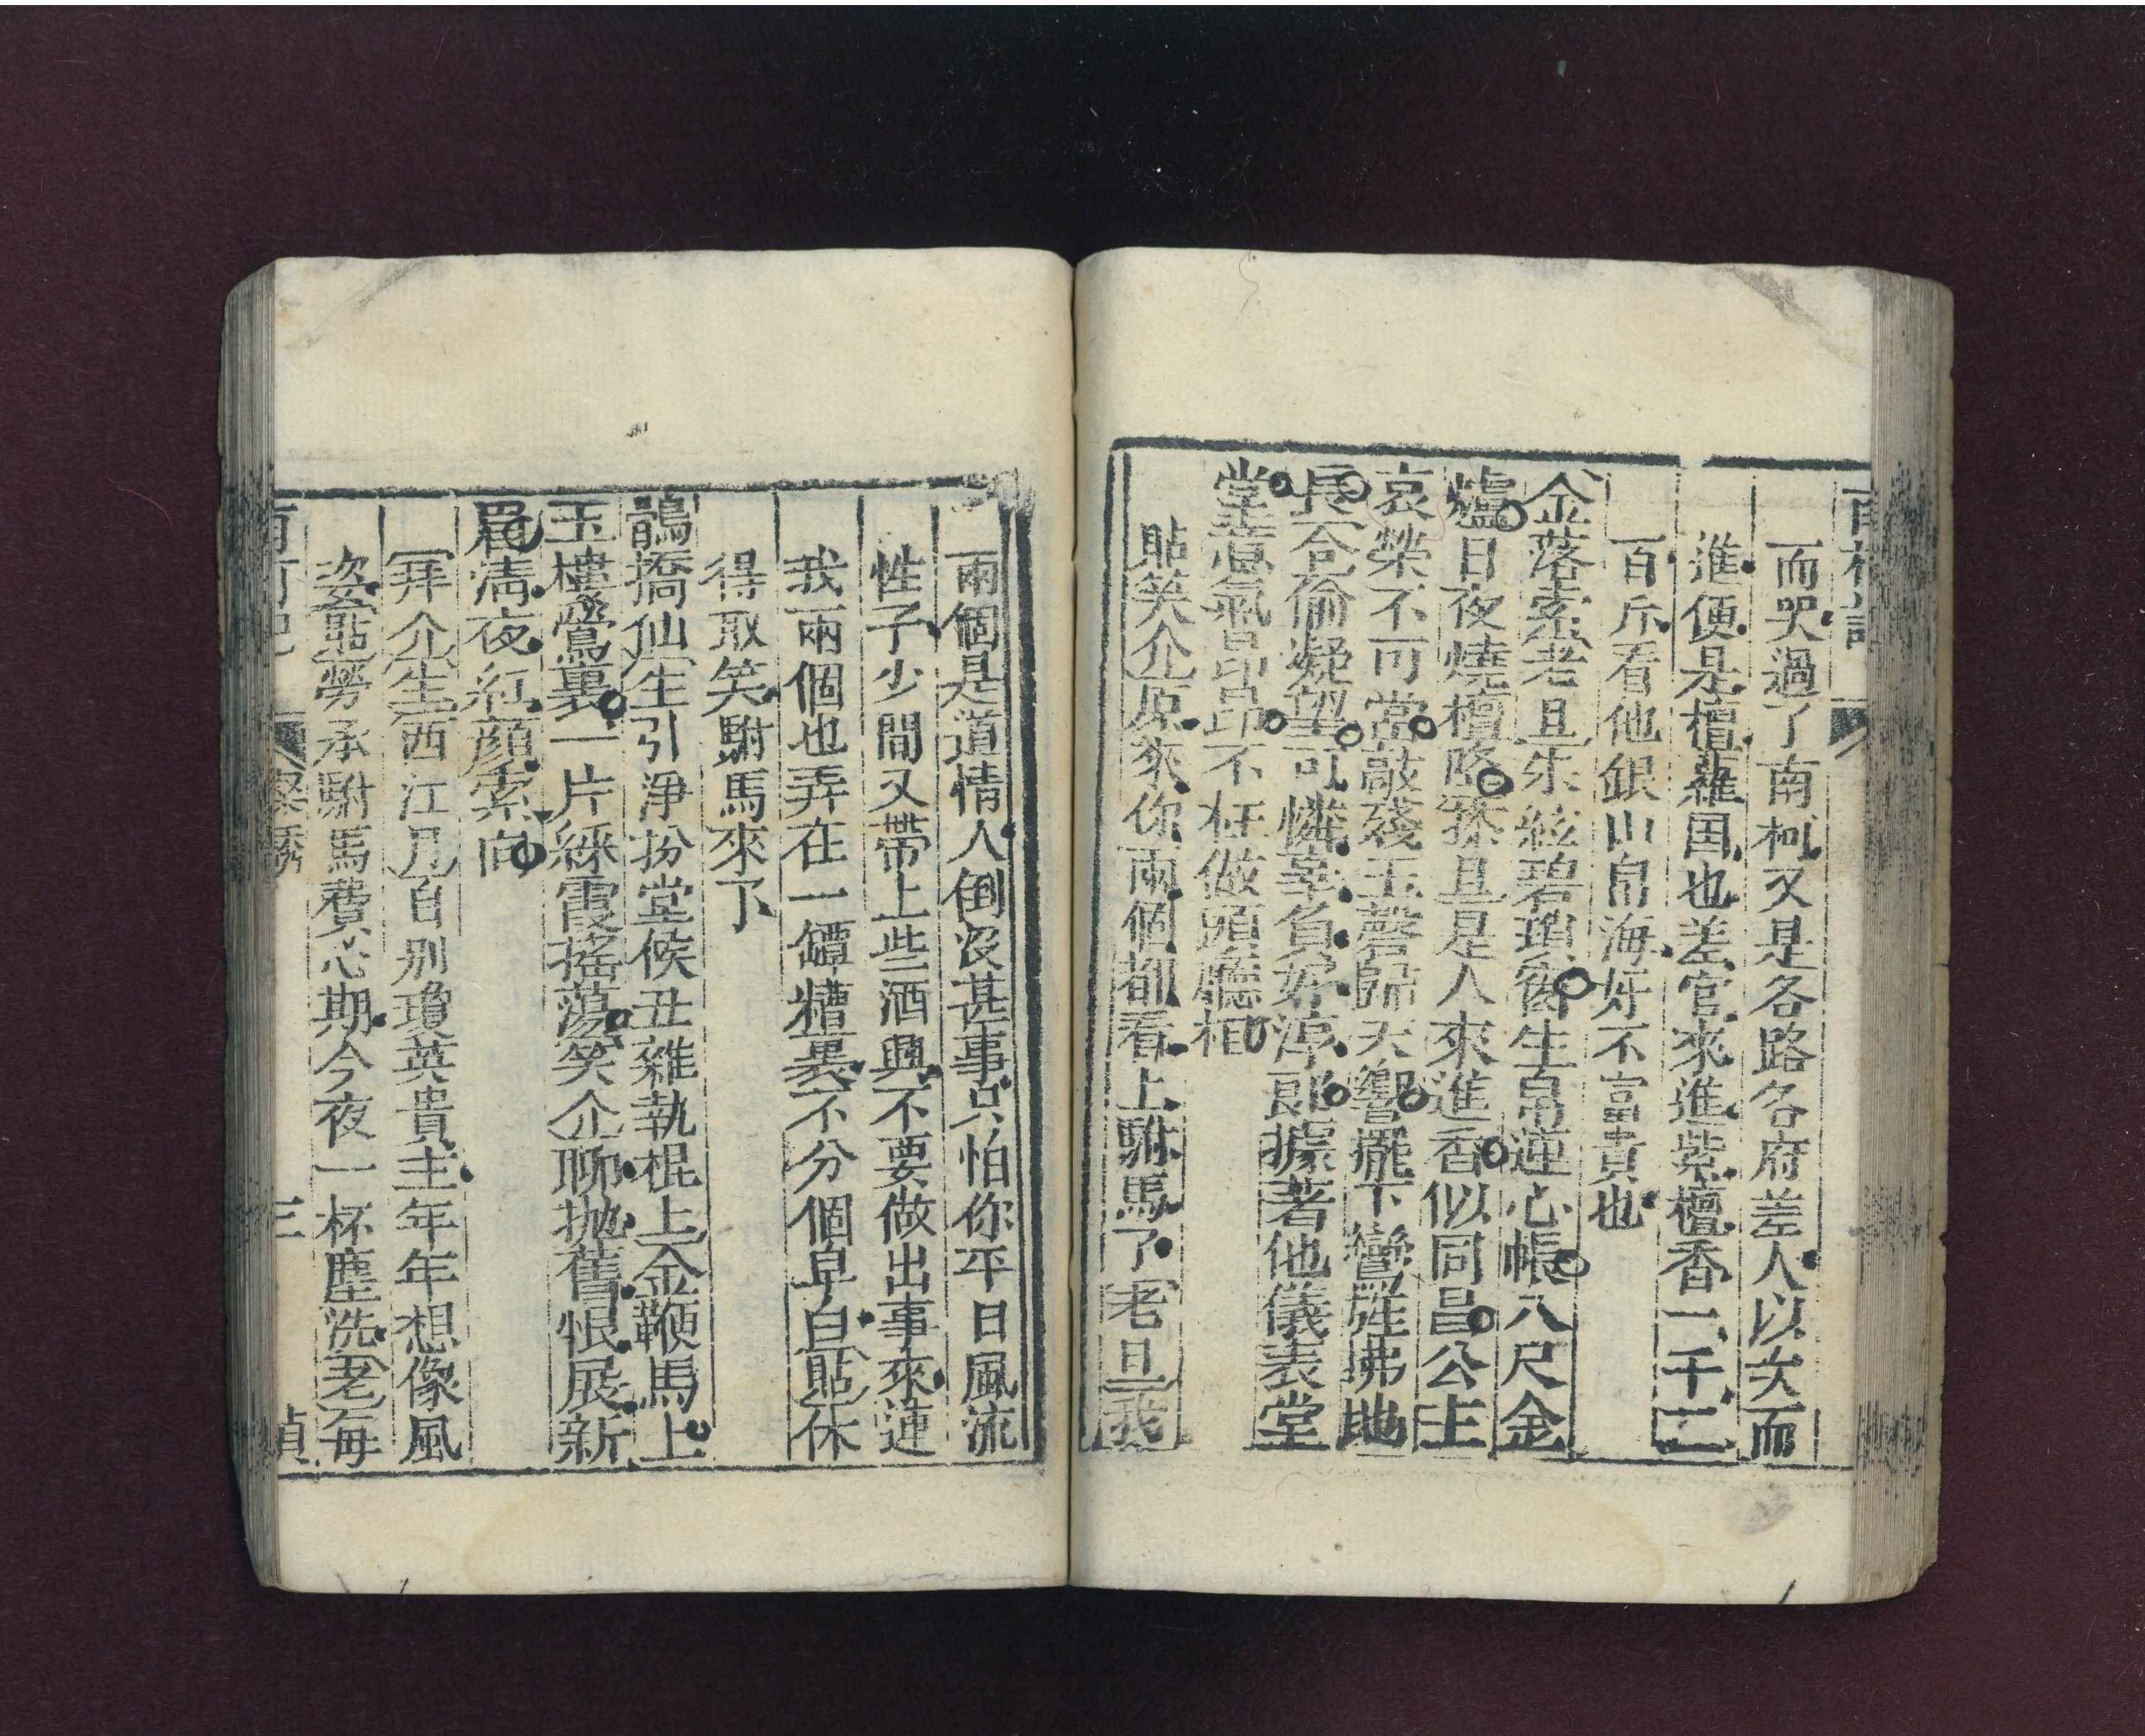 南柯記
而哭過了南柯又是各路各府差人以次而
進便是檀蘿国也差官來進紫檀香一千二
百斤看他銀山帛海好不富貴也
金落索老旦朱絃碧瑣窗生帛蓮心帳八尺金
爐日夜燒檀降搽旦是人來進香似同昌公主
哀榮不可當敲殘玉磬歸天響擺下鸞旌拂地
長合偷凝望可憐辜負好凉郎據著他儀表堂
堂意氣昂昂不枉做頭廳相
貼笑介原來你兩個都看上駙馬了老旦我
兩個是道情人倒沒甚事只怕你平日風流
性子少間又帶上些酒興不要做出事來連
我兩個也弄在一罈糟裏不分個皁白貼休
得取笑駙馬來了
鵲橋仙生引淨扮堂候丑雜執棍上金鞭馬上
玉樓鶯裏一片綵霞搖蕩笑介聊拋舊恨展新
眉清夜紅顏索向
拜介生西江月自別瓊英貴主年年想像風
姿貼勞承駙馬費心期今夜一杯塵洗老每
南柯記
粲誘
三
貞